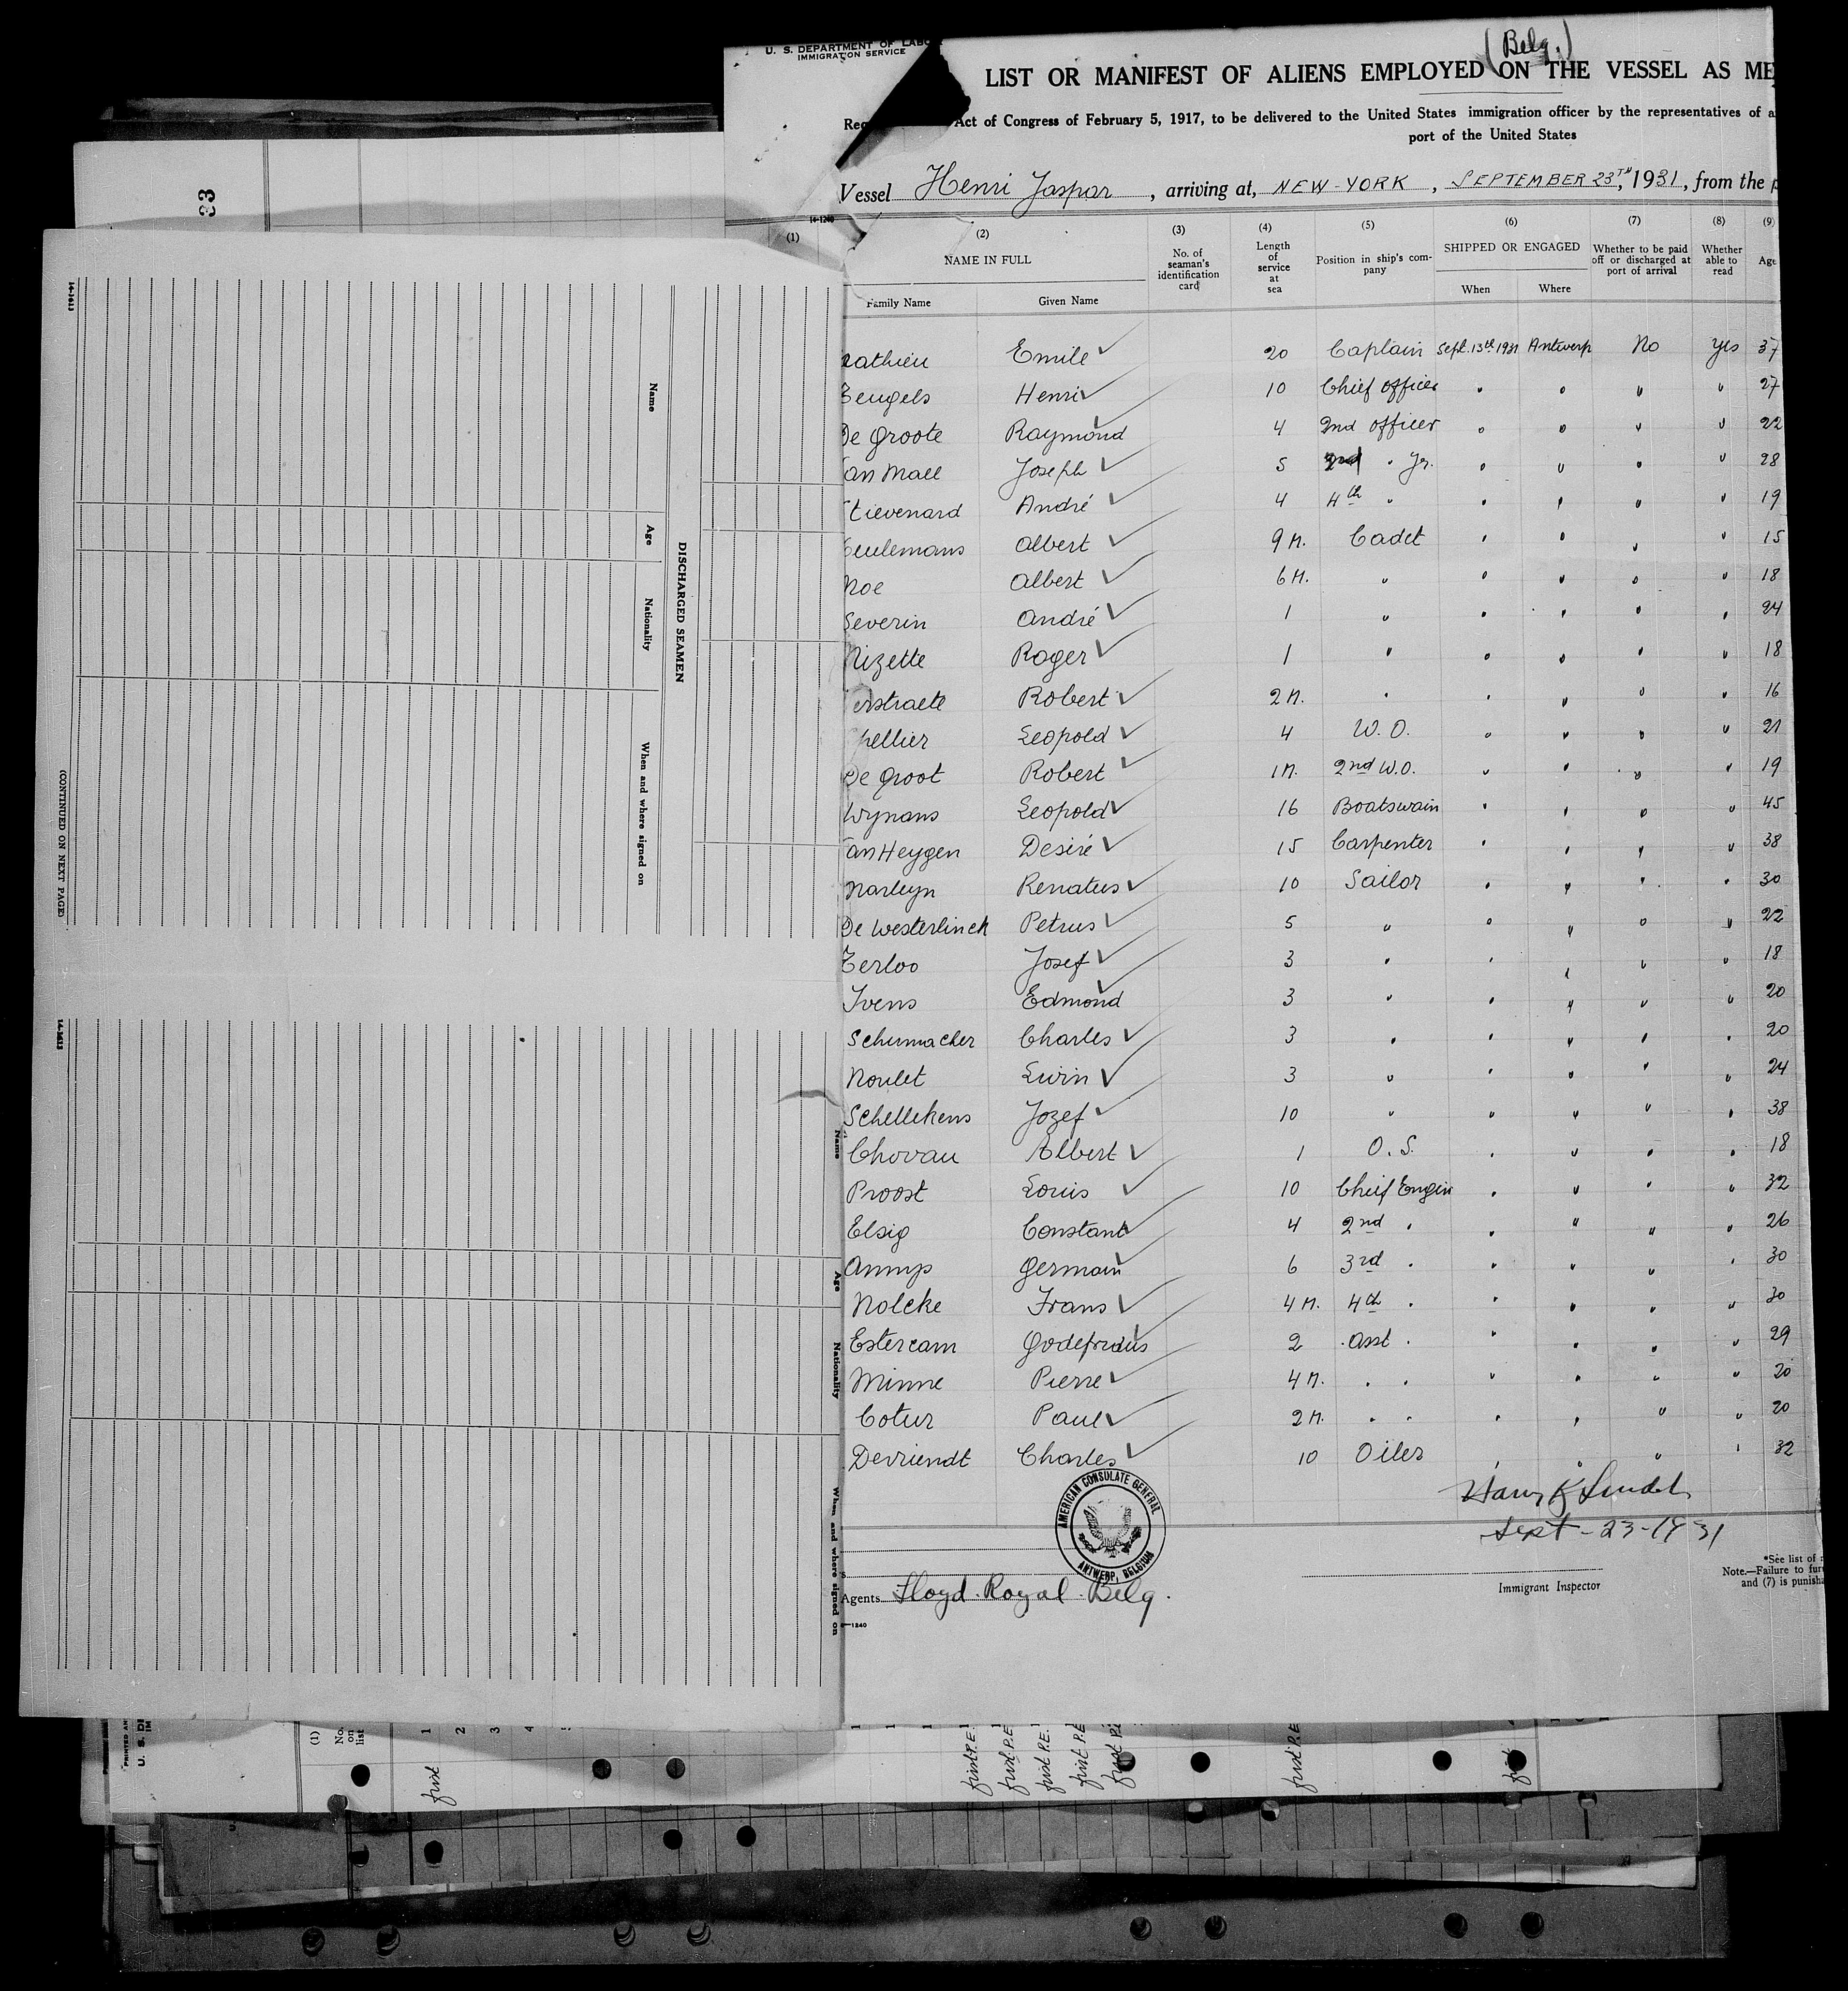 U. S. DEPARTMENT OF LABOR
IMMIGRATION SERVICE
(Belg.)
LIST OR MANIFEST OF ALIENS EMPLOYED ON THE VESSEL AS ME
Act of Congress of February 5, 1917, to be delivered to the United States immigration officer by the representatives of a
port of the United States
Vessel Henri Jaspar, arriving at, NEW-YORK, SEPTEMBER 23TH, 1931, from the p
14-1240
(1) (2) (3) (4) (5) (6) (7) (8) (9)
NAME IN FULL
Family Name Given Name
No. of seaman's identification card
Length of service at sea
Position in ship's company
SHIPPED OR ENGAGED
When Where
Whether to be paid off or discharged at port of arrival
Whether able to read
Age
athieu Emile 20 Captain Sept. 13th 1931 Antwerp No Yes 37
eugels Henri 10 Chief officer " " " " 27
De Groote Raymond 4 2nd officer " " " " 22
an Mall Joseph 5 " Jr. " " " " 28
tievenard André 4 4th " " " " " 19
eulemans Albert 9 M. Cadet " " " " 15
Noe Albert 6 M. " " " " " 18
Severin André 1 " " " " " 24
Nizette Roger 1 " " " " " 18
erstraete Robert 2 M. " " " " " 16
pellier Leopold 4 W. O. " " " " 21
De Groot Robert 1 M. 2nd W.O. " " " " 19
Wynans Leopold 16 Boatswain " " " " 45
an Heygen Desiré 15 Carpenter " " " " 38
Marleyn Renatus 10 Sailor " " " " 30
De Westerlinck Petrus 5 " " " " " 22
Terloo Josef 3 " " " " " 18
Ivens Edmond 3 " " " " " 20
Schumacher Charles 3 " " " " " 20
Noulet Livin 3 " " " " " 24
Schellekens Jozef 10 " " " " " 38
Chovau Albert 1 O. S. " " " " 18
Proost Louis 10 Chief Engin " " " " 32
Elsig Constant 4 2nd " " " " " 26
Annys Germain 6 3rd " " " " " 30
Nolcke Frans 4 M. 4th " " " " " 30
Estercam Godefridus 2 Asst " " " " " 29
Minne Pierre 4 M. " " " " " " 20
Cotur Paul 2 M. " " " " " " 20
Devriendt Charles 10 Oiler " " " " 32
Sept-23-1931
AMERICAN CONSULATE GENERAL
ANTWERP, BELGIUM
Agents Lloyd Royal Belg.
Immigrant Inspector
*See list of
Note.—Failure to fur
and (7) is punisha
—1240
33
14-1413
Name
Age
Nationality
When and where signed on
DISCHARGED SEAMEN
(CONTINUED ON NEXT PAGE)
14-1413
Name
Age
Nationality
When and where signed on
PRINTED AN
U. S. DE
IM
(1)
No. on list
1
2
3
4
first
first P.E.
first P.E.
first P.E.
first P.E.
first P.E.
first P.E.